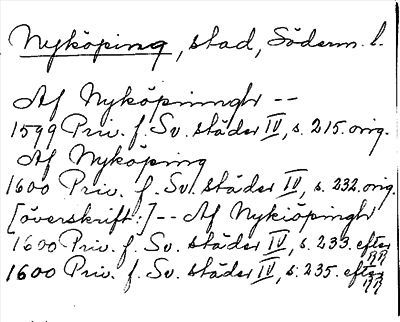 Nyköping, stad, Söderm. l.
Af Nyköpinngh --
1599 Priv. f. Sv. städer IV, s. 215. orig.
Af Nyköping
1600 Priv. f. Sv. städer IV, s. 232. orig.
[överskrift:] -- Af Nykiöpingh
1600 Priv. f. Sv. städer IV, s. 233. efter RR
1600 Priv. f. Sv. städer IV, s. 235. efter RR